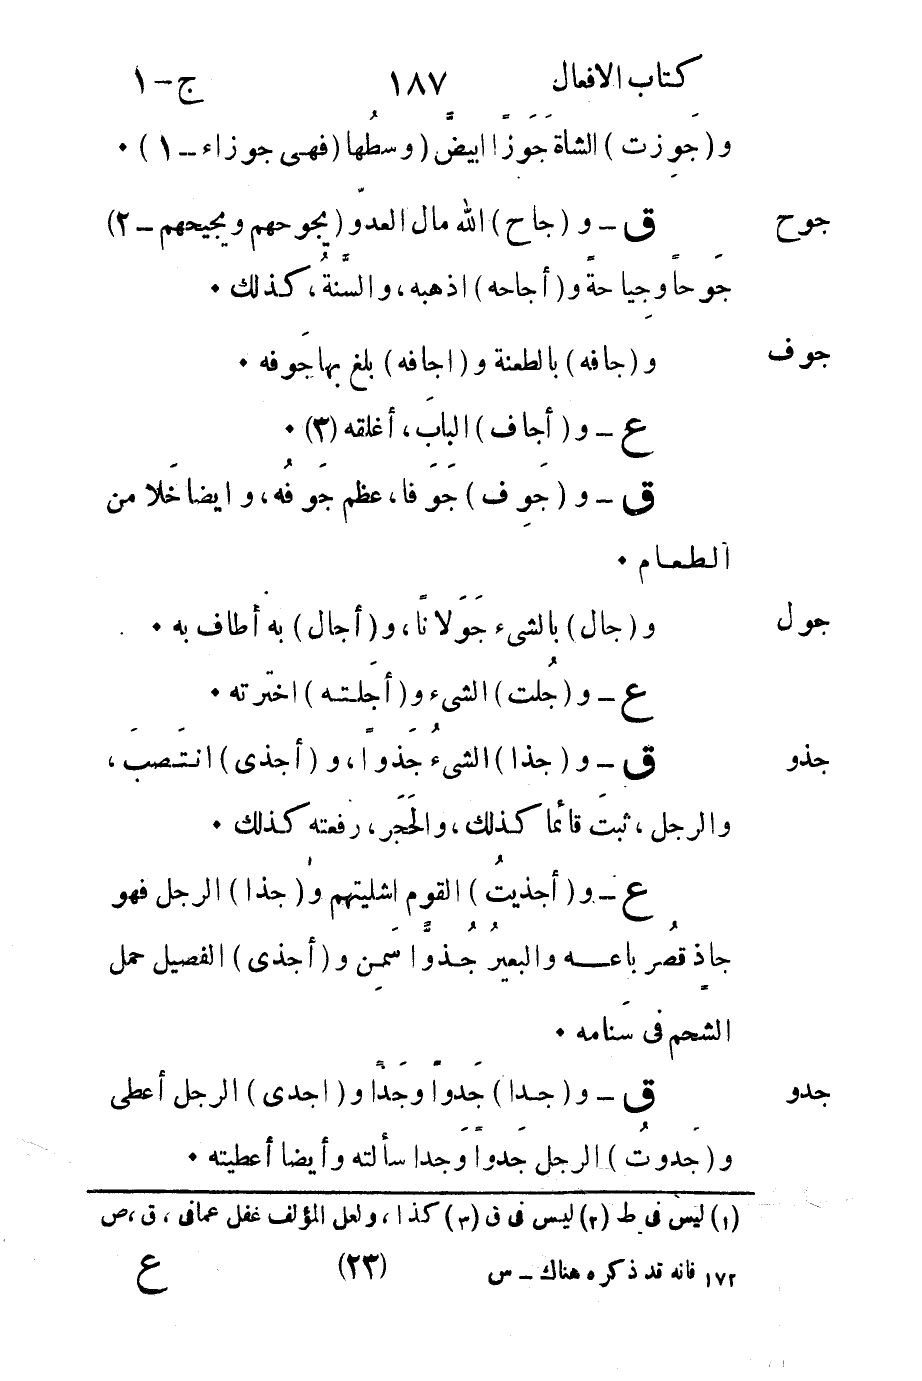 كتاب الافعال ١٨٧ ج-١
و (جَوِزت) الشاة جَوَزًا ابيضَّ (وسطُها (فهى جوزاء - ١) ٠
جوح ق - و (جاح) الله مال العدوّ (يجوحهم ويجيحهم - ٢)
جَوحاً وجِياحةً و (أجاحه) اذهبه، والسَّنةُ، كذلك ٠
جوف و (جافه) بالطعنة و (اجافه) بلغ بها جَوفه ٠
ع - و (أجاف) البابَ، أغلقه (٣) ٠
ق - و (جَوِف) جَوَفا، عظم جَوفُه، وايضا خَلا من
الطعام ٠
جول و (جال) بالشىء جَوَلاناً، و (أجال) به أطاف به ٠
ع - و (جُلت) الشىء و (أجَلته) اخترته ٠
جذو ق - و (جذا) الشىءُ جَذواً، و (أجذى) انتَصبَ،
والرجل، ثبتَ قائما كذلك، والحَجَر، رفعته كذلك ٠
ع - و (أجذيتُ) القوم اشليتهم و (جذا) الرجل فهو
جاذٍ قصُر باعه والبعيرُ جُذوًّا سَمِن و (أجذى) الفصيل حمل
الشحم فى سَنامه ٠
جدو ق - و (جدا) جَدواً وجَدًّا و (اجدى) الرجل أعطى
و (جَدوتُ) الرجل جَدواً وجَدا سألته وأيضا أعطيته ٠
(١) ليس فى ط (٢) ليس فى ق (٣) كذا، ولعل المؤلف غفل عمافى، ق، ص
١٧٢ فانه قد ذكره هناك - س (٢٣) ع